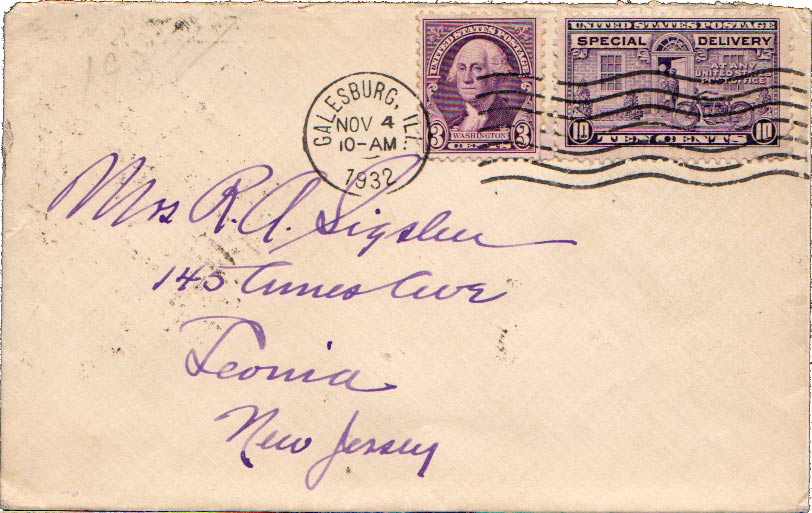 UNITED STATES POSTAGE
3 WASHINGTON 3
CENTS
UNITED STATES POSTAGE
SPECIAL DELIVERY
AT ANY
UNITED STATES
POST OFFICE
10 TEN CENTS 10
GALESBURG, ILL.
NOV 4
10-AM
1932
Mrs R. A.
145 Ames Ave
Leonia
New Jersey